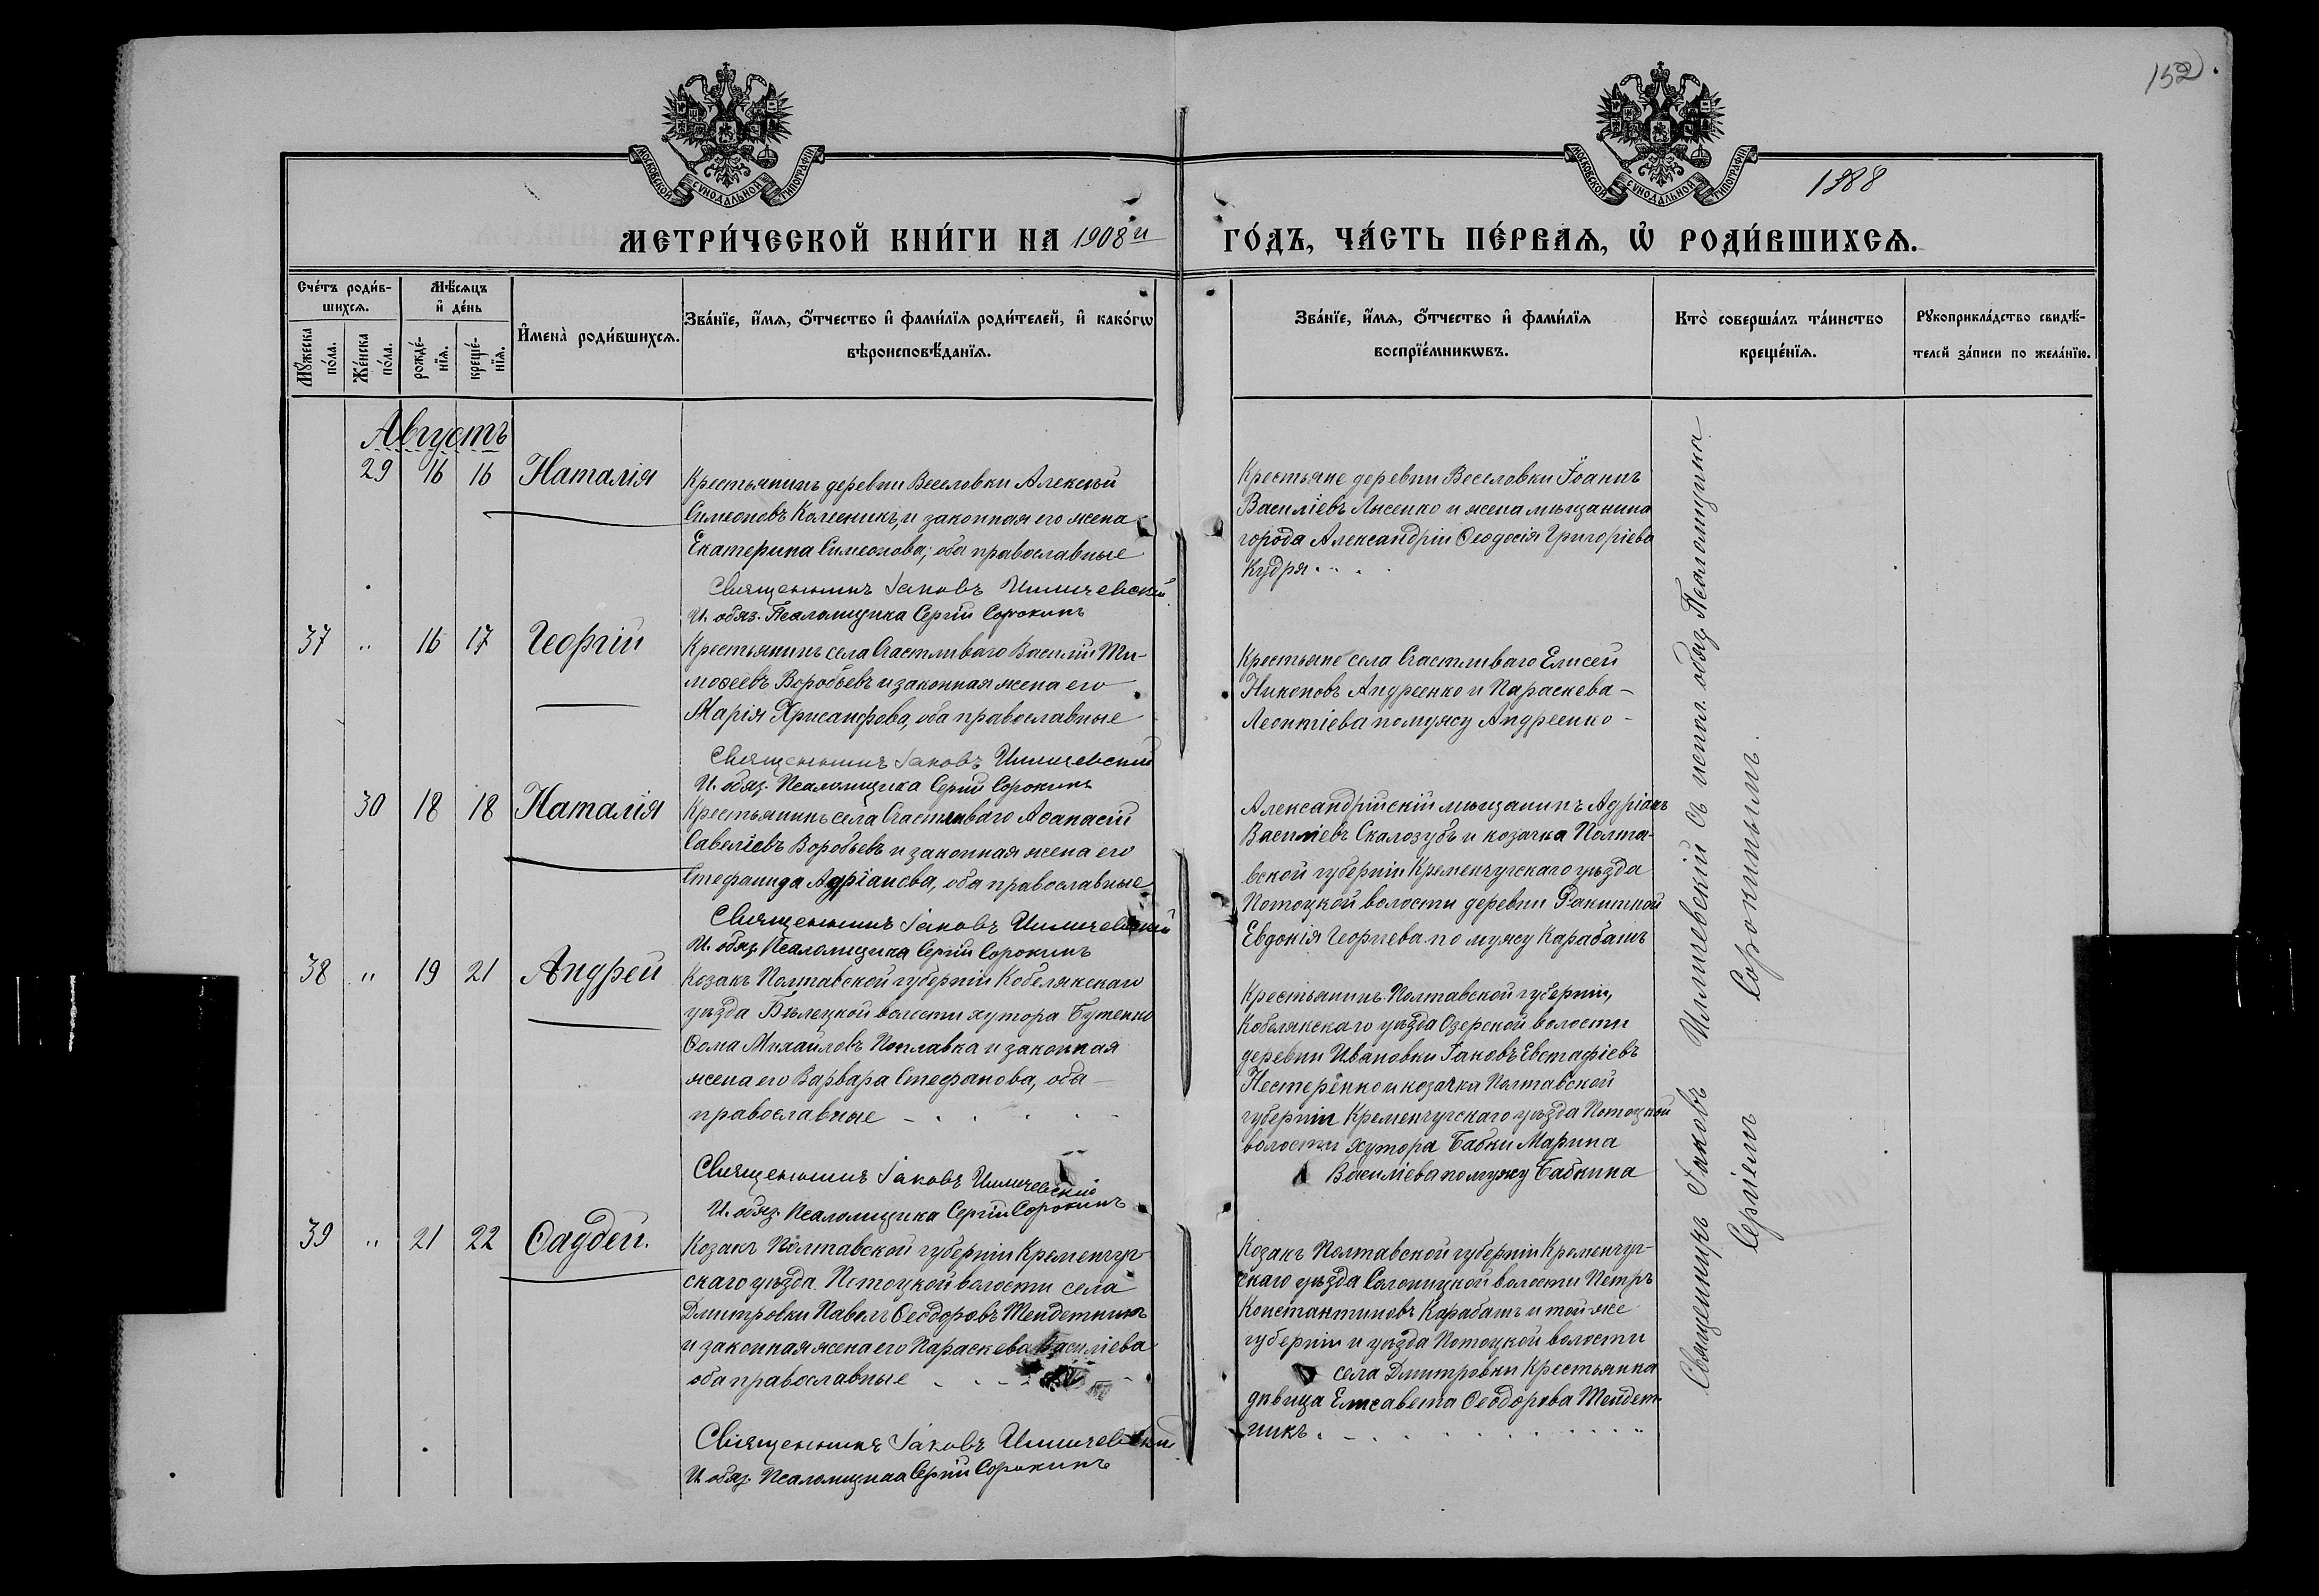 152.
МОСКОВСКОЙ СѴНОДАЛЬНОЙ ТИПОГРАФІИ
МОСКОВСКОЙ СѴНОДАЛЬНОЙ ТИПОГРАФІИ
1388
МЕТРИ́ЧЕСКОЙ КНИ́ГИ НА 1908й ГО́ДЪ, ЧА́СТЬ ПЕ́РВАѦ, Ѡ РОДИ́ВШИХСѦ.
Сче́тъ роди́в-
шихсѧ.
Мꙋ́жеска
по́ла.
Же́нска
по́ла.
Мѣ́сѧцъ
и҆ де́нь
рожде́-
нїѧ.
креще́-
нїѧ.
И҆мена̀ роди́вшихсѧ.
Зва́нїе, и҆́мѧ, ѻ҆́тчество и҆ фами́лїѧ роди́телей, и҆ како́гѡ
вѣроисповѣ́данїѧ.
Зва́нїе, и҆́мѧ, ѻ҆́тчество и҆ фами́лїѧ
воспрїе́мникѡвъ.
Кто̀ соверша́лъ та́инство
креще́нїѧ.
Рꙋкоприкла́дство свидѣ́-
телей за́писи по жела́нїю.
Августъ
29 16 16 Наталія
Крестьянинъ деревни Веселовки Алексѣй
Симеоновъ Колесникъ, и законная его жена
Екатерина Симеонова; оба православные
Священникъ Іаковъ Имшевскій
И. обяз. Псаломщика Сергій Сорокинъ
Крестьяне деревни Веселовки Іоаннъ
Василіевъ Лысенко и жена мѣщанина
города Александріи Ѳеодосія Григоріева
Кудря
37 " 16 17 Георгій
Крестьянинъ села Счастливаго Василій Ти-
моѳеевъ Воробьевъ и законная жена его
Марія Хрисанфова, оба православные
Священникъ Іаковъ
И. обяз. Псаломщика Сергій Сорокинъ
Крестьяне села Счастливаго Елисей
Никоновъ Андреенко и Параскева -
Леонтіева по мужу Андреенко -
30 18 18 Наталія
Крестьянинъ села Счастливаго Аѳанасій
Савеліевъ Воробьевъ и законная жена его
Стефанида Адріанова, оба православные
Священникъ Іаковъ
И. обяз. Псаломщика Сергій Сорокинъ
Александрійскій мѣщанинъ Адріанъ
Василіевъ Скалозубъ и козачка Полта-
вской губерніи Кременчугскаго уѣзда
Потоцкой волости деревни Ракитной
Евдокія Георгіева по мужу Карабашъ
38 " 19 21 Андрей
Козакъ Полтавской губерніи Кобелякскаго
уѣзда Бѣлецкой волости хутора Бутенко
Ѳома Михайловъ Поплавка и законная
жена его Варвара Стефанова, оба -
православные -
Священникъ Іаковъ
И. обяз. Псаломщика Сергій Сорокинъ
Крестьянинъ Полтавской губерніи,
Кобелякскаго уѣзда Озерской волости
деревни Ивановки Іаковъ Евстафіевъ
Нестеренко и козачка Полтавской
губерніи Кременчугскаго уѣзда Потоцкой
волости хутора Бабки Марина
Василіева по мужу Бабкина
39 " 21 22 Ѳаддей.
Козакъ Полтавской губерніи Кременчуг-
скаго уѣзда Потоцкой волости села
Дмитровки Павелъ Ѳеодоровъ
и законная жена его Параскева Василіева
оба православные
Священникъ Іаковъ
И. обяз. Псаломщика Сергій Сорокинъ
Козакъ Полтавской губерніи Кременчуг-
скаго уѣзда волости Петръ
Константиновъ Карабашъ и той же
губерніи и уѣзда Потоцкой волости
села Дмитровки крестьянка
дѣвица Елисавета Ѳеодорова
никъ.
Священникъ Іаковъ съ испол. обяз. Псаломщика
Сергіемъ Сорокинымъ.